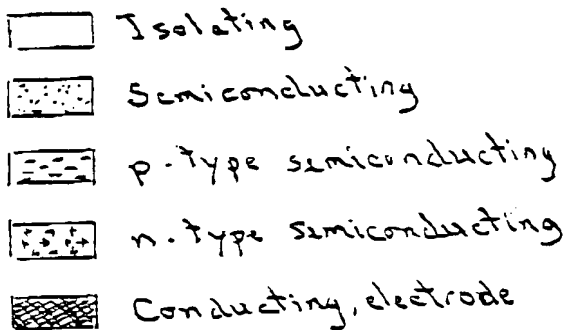 Isolating
Semiconducting
p-type semiconducting
n-type semiconducting
Conducting, electrode